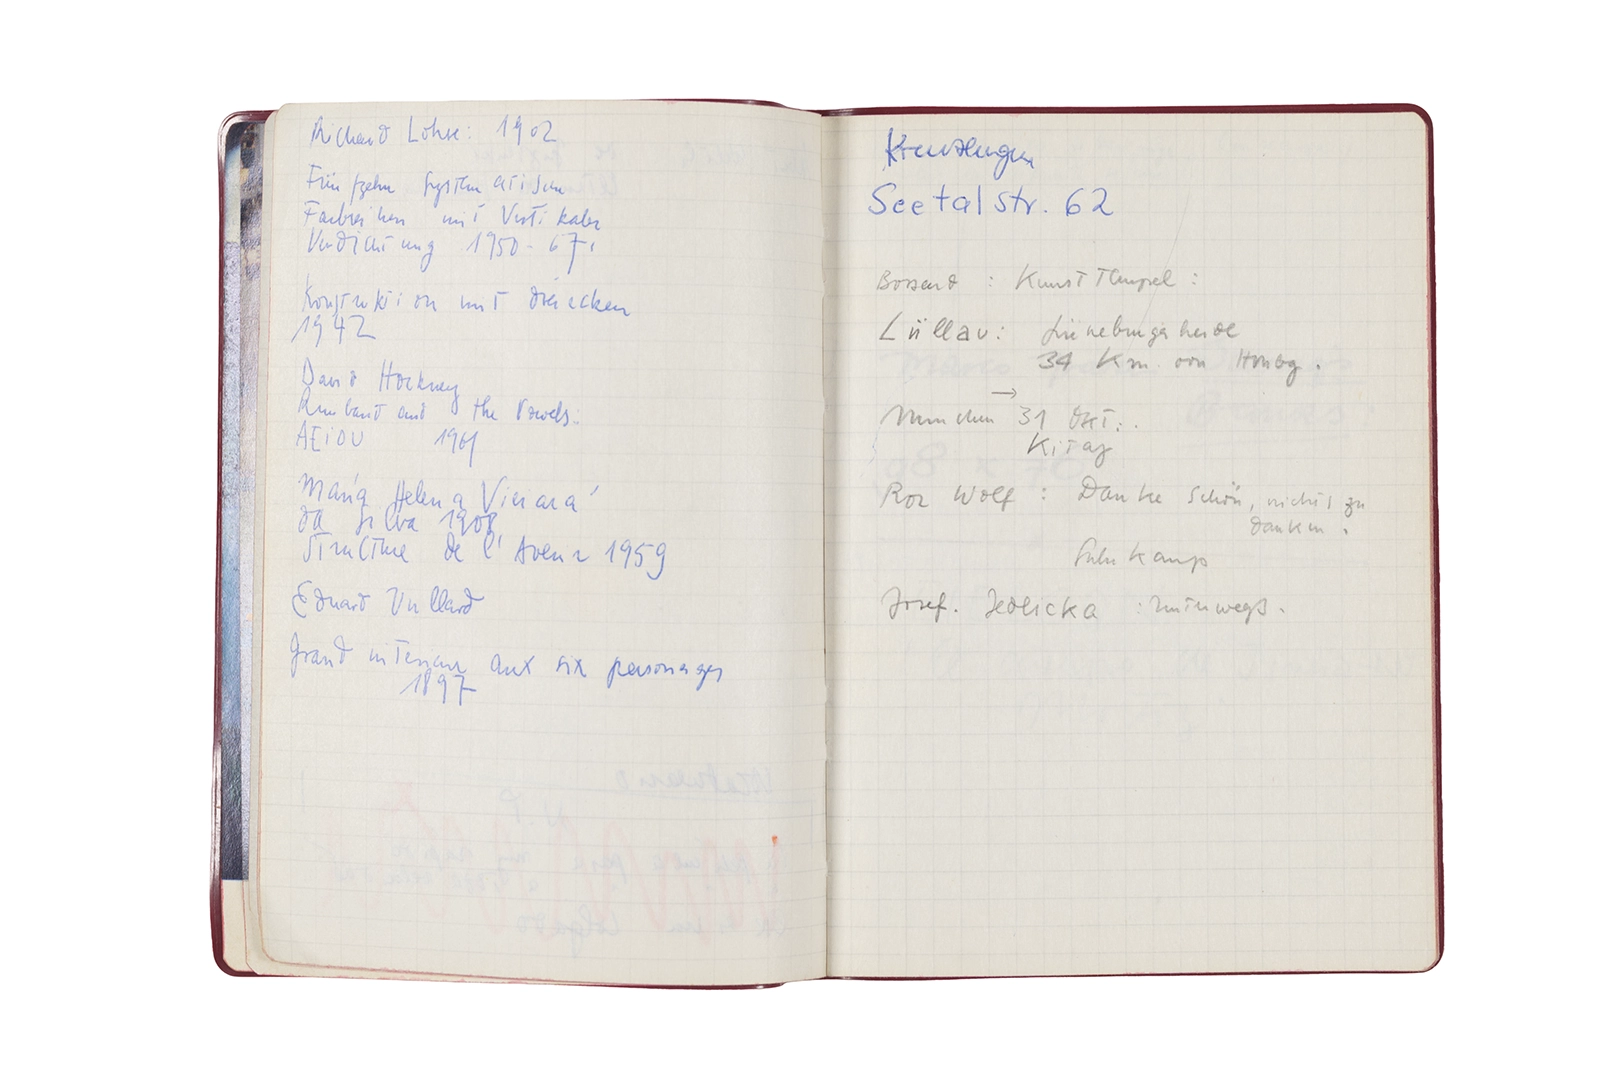 Richard Lohse: 1902
Fünfzehn systematischen
Farbreihen mit Vertikaler
Verdichtung 1950-67.
Konstruktion mit dreiecken
1942
David Hockney
and the Vowels:
AEIOU 1961
Maria Helena Vieira
da Silva 1908
Structure de l'Avenir 1959
Eduard Vuillard
Grand interieur aux six personages
1897
Kreuzlingen
Seetalstr. 62
Bossard : Kunst Tempel :
Lüllau: Lüneburgerheide
34 Km von Hmbg.
München → 31 Okt..
Kitaj
Ror Wolf : Danke schön, nichts zu
danken.
Suhrkamp
Josef. Jedlicka : unterwegs.